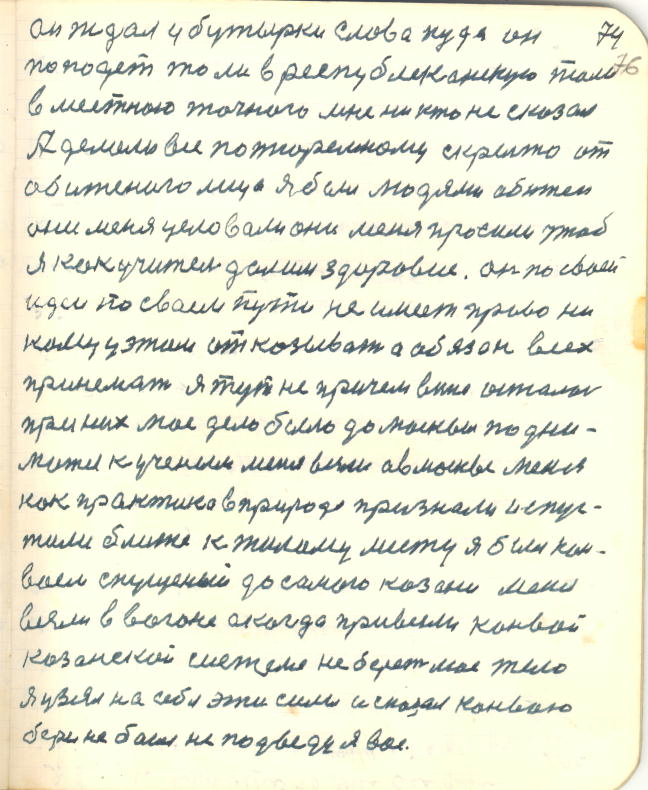 он ждал у бутырки слова куда он 74
поподет то ли в республеканскую толи 76
в местною точного мне никто не сказал
А делали все по тюремному скрыто от
обиженого лица Я был людями обижен
они меня целовали они меня просили чтоб
я как учитель дал им здоровие. он по своей
идеи по своем пути не имеет право ни
кому у этом отказыват а обязан всех
принемат я тут не причем вина осталас
при них мое дело было до москвы подни-
мат к ученым меня везли а в москве меня
как практика в природе признали и спус-
тили ближе к жилому месту я был кон-
воем спущеный до самого казани меня
везли в вагоне а когда привезли конвой
казанской системе не берет мое тело
я узял на себя эти силы и сказал конвою
бери не бойся не подведу я вас.